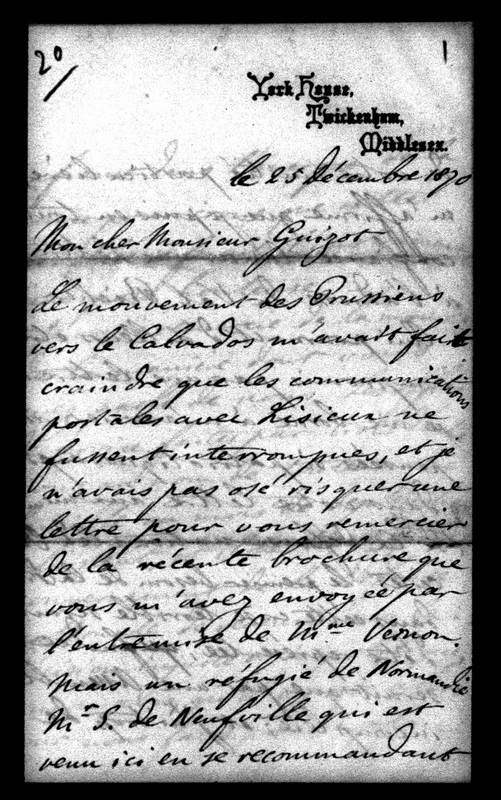 20/
1
York House,
Twickenham,
Middlesex.
le 25 décembre 1870
Mon cher Monsieur Guizot
Le mouvement des Prussiens
vers le Calvados m'avait fait
craindre que les communications
postales avec Lisieux ne
fussent interrompues, et je
n'avais pas osé risquer une
lettre pour vous remercier
de la récente brochure que
vous m'avez envoyée par
l'entremise de Mme Vernon.
Mais un réfugié de Normandie
Mr S. de Neufville qui est
venu ici en se recommandant